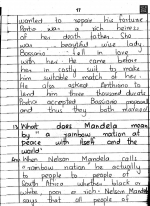 17
wanted to repair his fortune
Portia was a rich heiress
of her death father. She
was a beautiful wise lady
Bassanio fell in love
with her He came before
her in costly suit to make
him suitable match of her
He also asked Anthonio to
lend him three thousand ducats
Portia accepted Bassanio proposal
and thus they both married
What does Mandela mean
by "a rainbow nation at
peace with itself and the
world"
Ans When Nelson Mandela calls
"rainbow nation" He actually
to people to people of
South Africa whether black or
white, poor or rich. Nelson Mandela
says that all people of